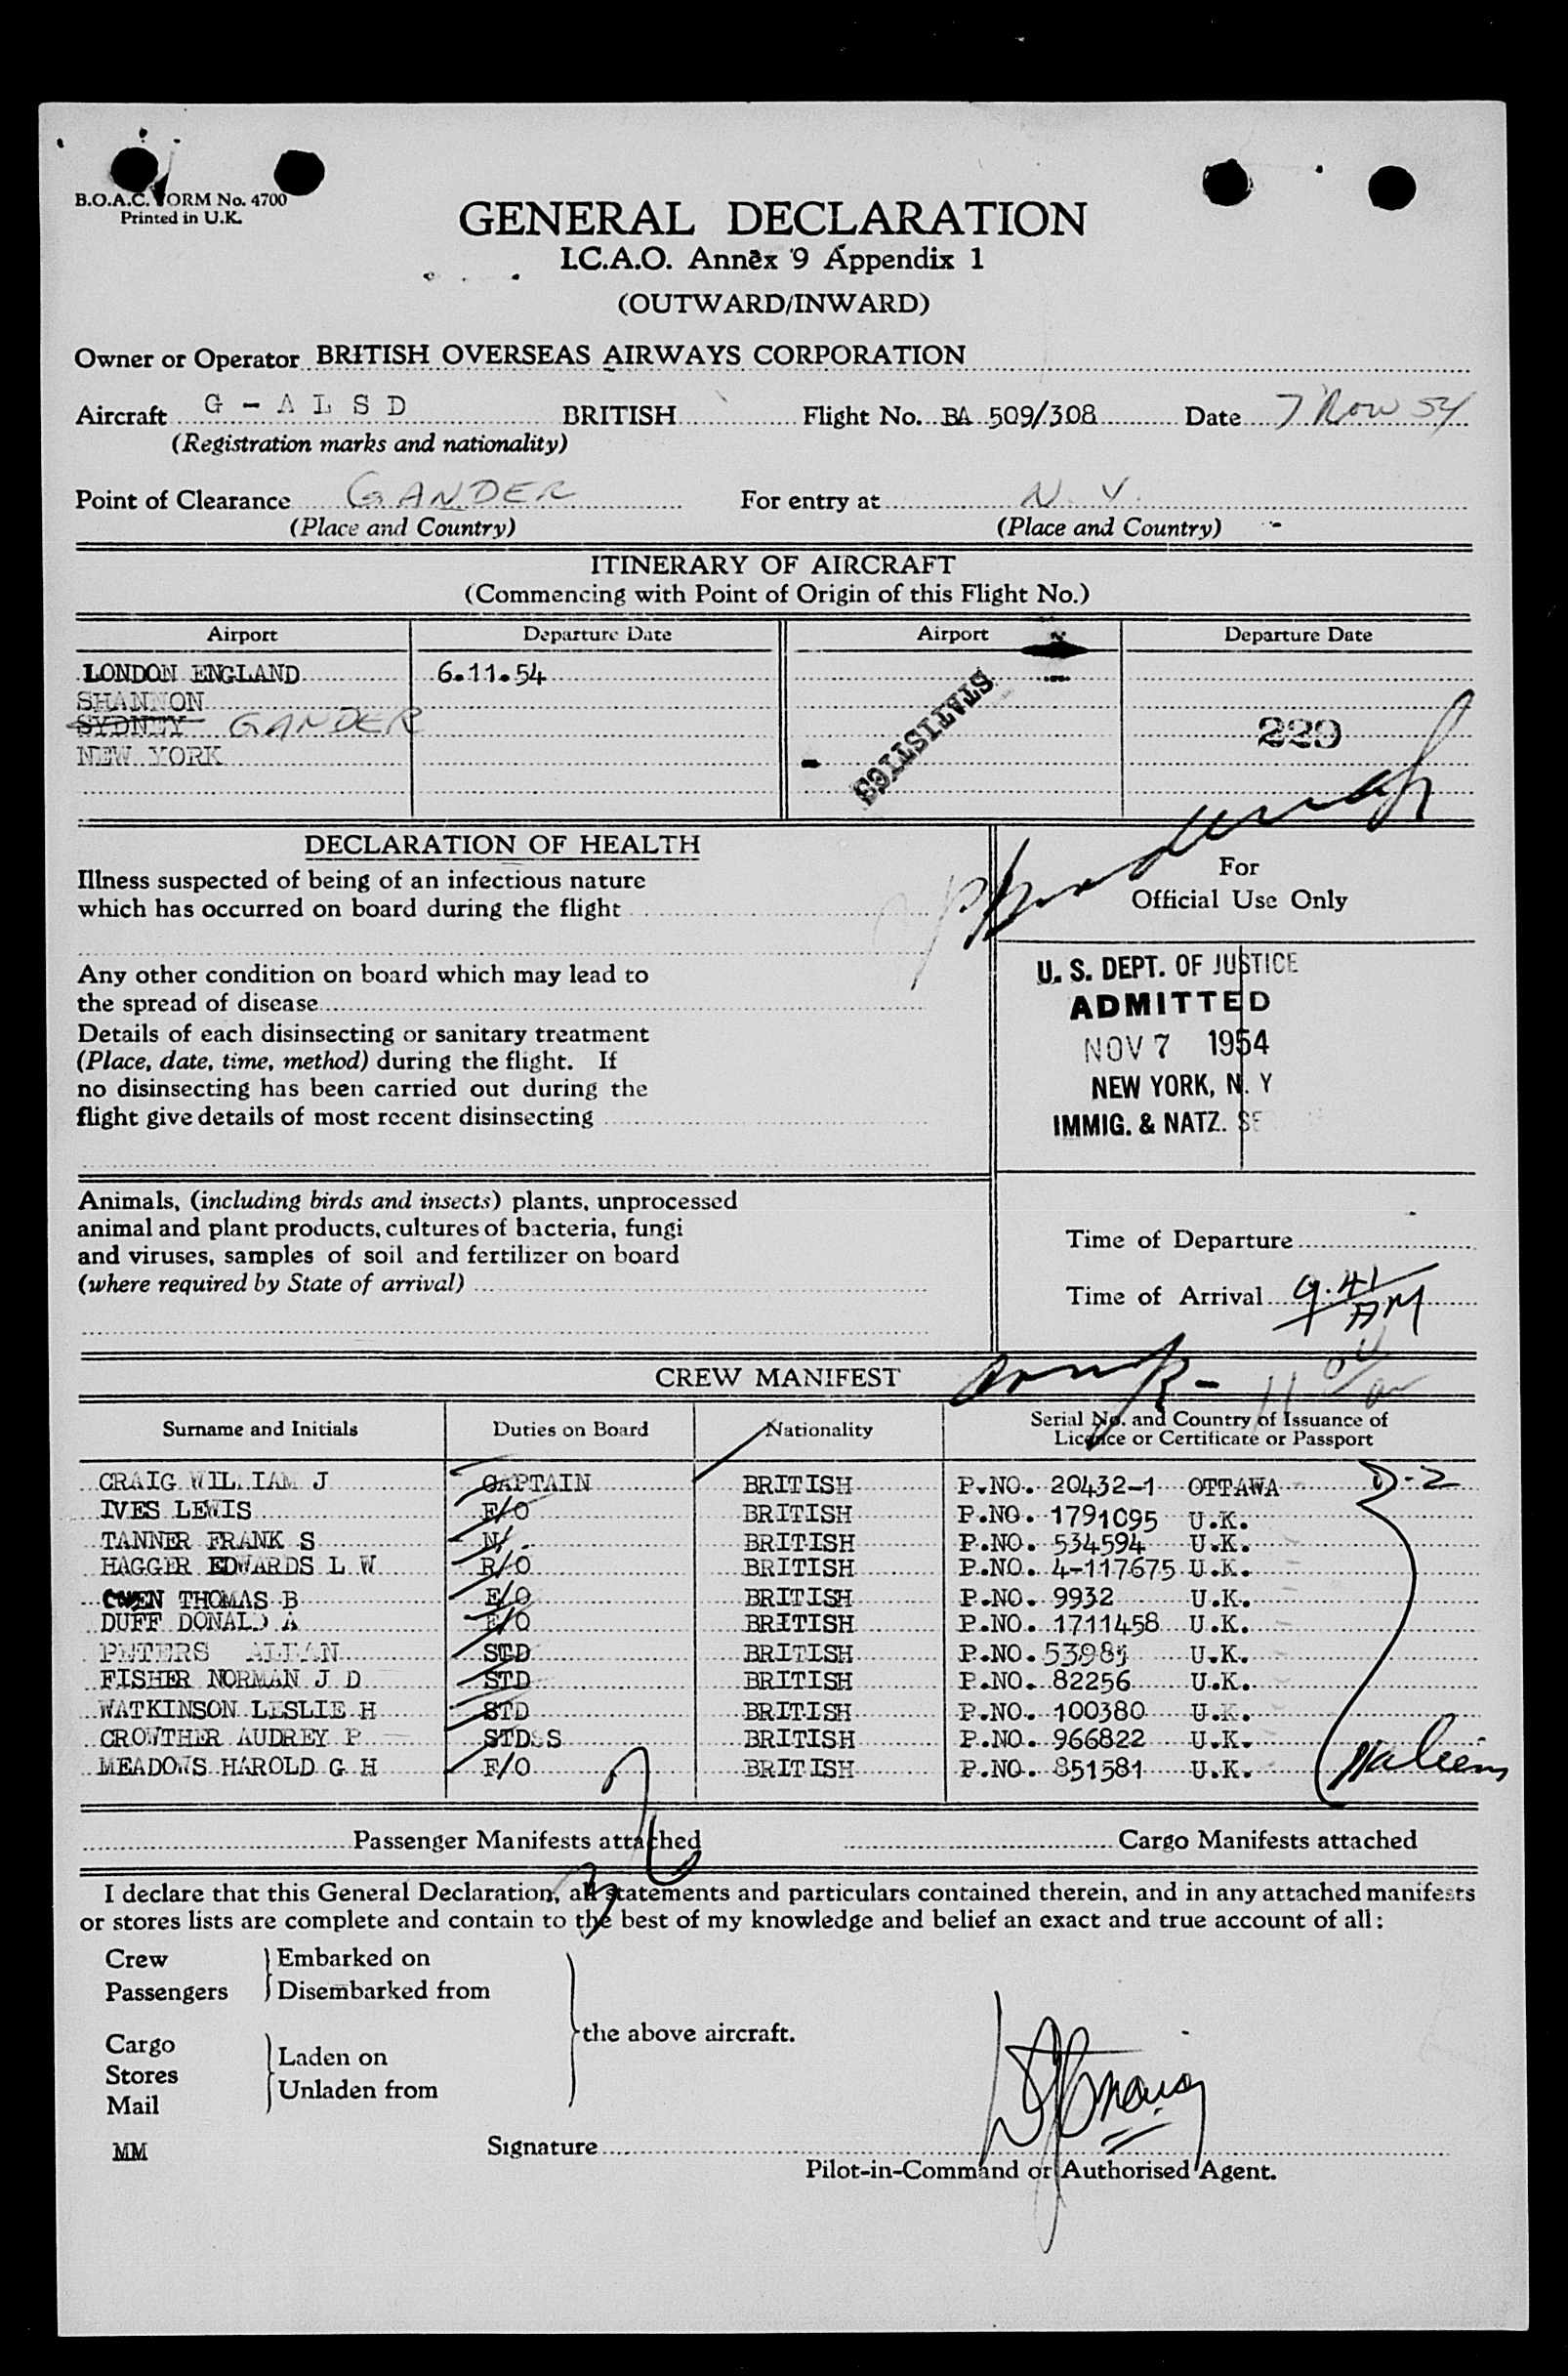 B.O.A.C. FORM No. 4700
Printed in U.K.
GENERAL DECLARATION
I.C.A.O. Annex 9 Appendix 1
(OUTWARD/INWARD)
Owner or Operator BRITISH OVERSEAS AIRWAYS CORPORATION
Aircraft G - A L S D BRITISH Flight No. BA 509/308 Date 7 Nov 54
(Registration marks and nationality)
Point of Clearance GANDER For entry at N. Y.
(Place and Country) (Place and Country)
ITINERARY OF AIRCRAFT
(Commencing with Point of Origin of this Flight No.)
Airport Departure Date Airport Departure Date
LONDON ENGLAND 6.11.54
SHANNON
SYDNEY GANDER
NEW YORK
STATISTICS
229
DECLARATION OF HEALTH
Illness suspected of being of an infectious nature
which has occurred on board during the flight
Any other condition on board which may lead to
the spread of disease
Details of each disinsecting or sanitary treatment
(Place, date, time, method) during the flight. If
no disinsecting has been carried out during the
flight give details of most recent disinsecting
For
Official Use Only
U. S. DEPT. OF JUSTICE
ADMITTED
NOV 7 1954
NEW YORK, N. Y
IMMIG. & NATZ. SE
Animals, (including birds and insects) plants, unprocessed
animal and plant products, cultures of bacteria, fungi
and viruses, samples of soil and fertilizer on board
(where required by State of arrival)
Time of Departure
Time of Arrival 9.41 AM
CREW MANIFEST
Surname and Initials Duties on Board Nationality Serial No. and Country of Issuance of
Licence or Certificate or Passport
CRAIG WILLIAM J CAPTAIN BRITISH P.NO. 20432-1 OTTAWA D-2
IVES LEWIS F/O BRITISH P.NO. 1791095 U.K.
TANNER FRANK S N/ BRITISH P.NO. 534594 U.K.
HAGGER EDWARDS L W R/O BRITISH P.NO. 4-117675 U.K.
OWEN THOMAS B E/O BRITISH P.NO. 9932 U.K.
DUFF DONALD A E/O BRITISH P.NO. 1711458 U.K.
PETERS ALLAN STD BRITISH P.NO. 53985 U.K.
FISHER NORMAN J D STD BRITISH P.NO. 82256 U.K.
WATKINSON LESLIE H STD BRITISH P.NO. 100380 U.K.
CROWTHER AUDREY P STDSS BRITISH P.NO. 966822 U.K.
MEADOWS HAROLD G H F/O BRITISH P.NO. 851581 U.K.
Passenger Manifests attached Cargo Manifests attached
I declare that this General Declaration, all statements and particulars contained therein, and in any attached manifests
or stores lists are complete and contain to the best of my knowledge and belief an exact and true account of all:
Crew Embarked on
Passengers Disembarked from
the above aircraft.
Cargo
Stores Laden on
Mail Unladen from
MM Signature
Pilot-in-Command or Authorised Agent.